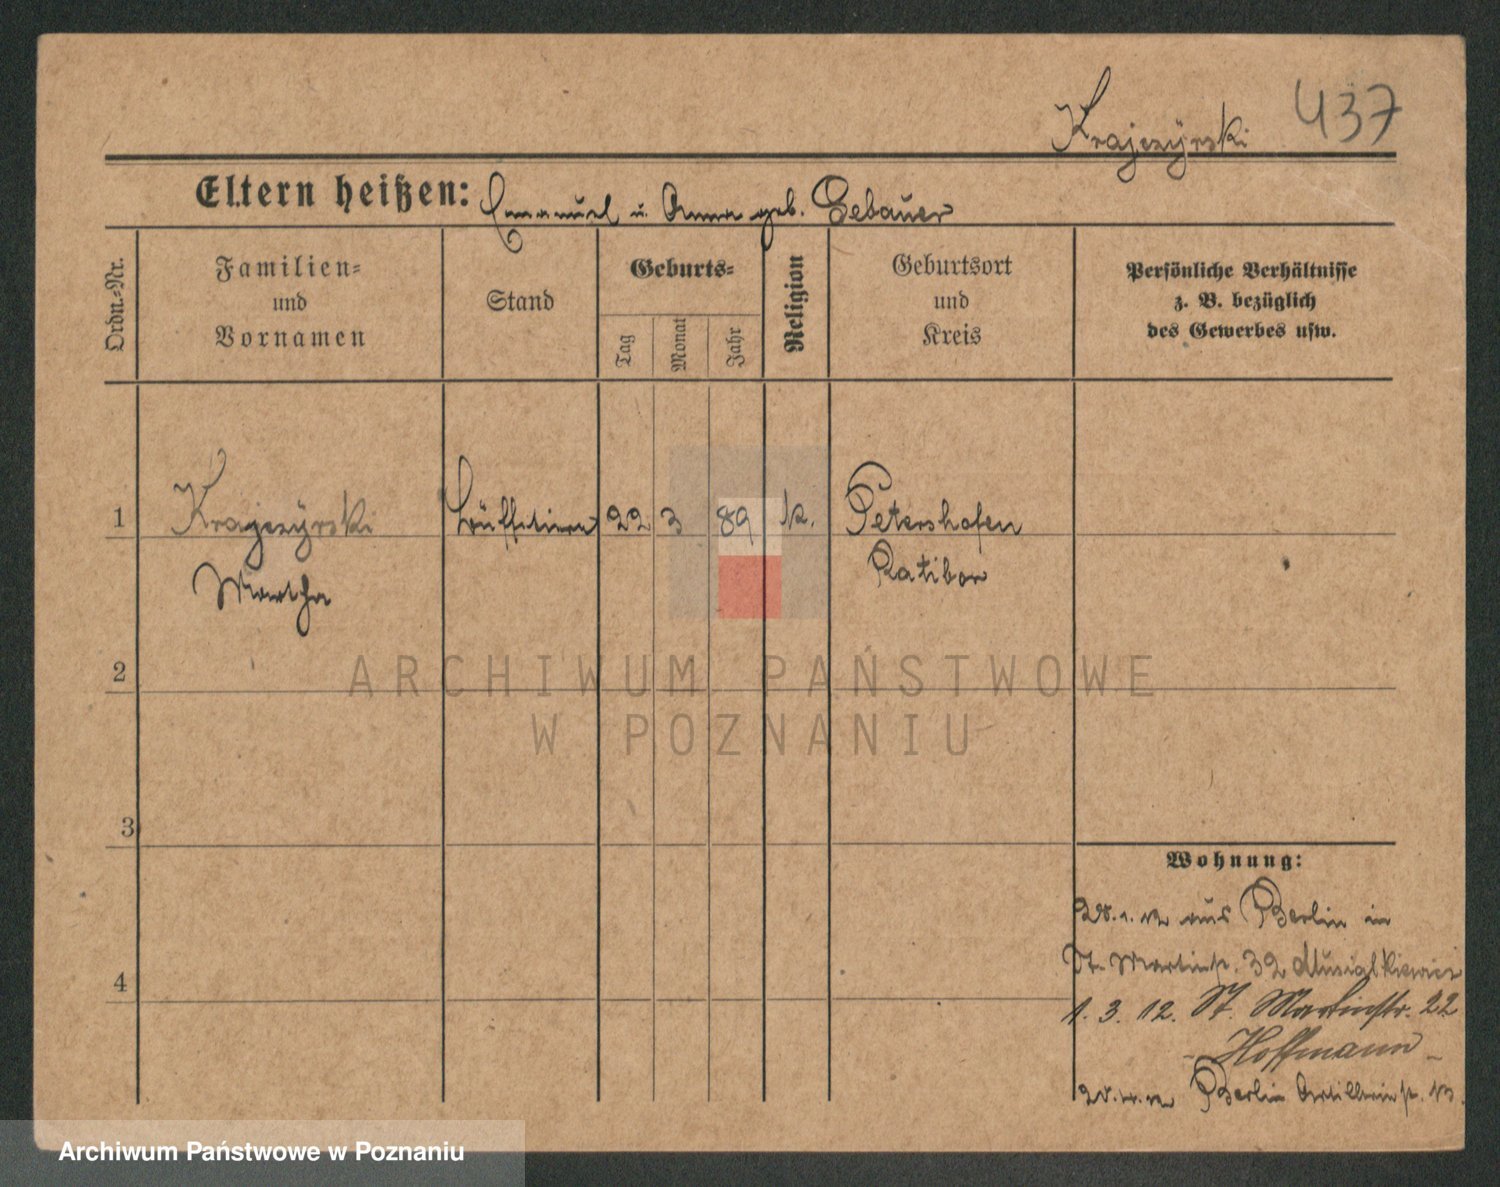 437
Krajczyrski
Eltern heißen: Emanuel u. Anna geb. Gebauer
Ordn.-Nr.
Familien-
und
Vornamen
Stand
Geburts-
Tag
Monat
Jahr
Religion
Geburtsort
und
Kreis
Persönliche Verhältnisse
z. B. bezüglich
des Gewerbes usw.
1 Krajczyrski 22 3 89 k. Petershofen
Martha Ratibor
2
3
4
Wohnung:
aus Berlin in
St. Martinstr. 32 Musialkiewicz
1. 3. 12. St. Martinstr. 22
- Hoffmann -
Berlin Artilleriestr.
ARCHIWUM PAŃSTWOWE
W POZNANIU
Archiwum Państwowe w Poznaniu